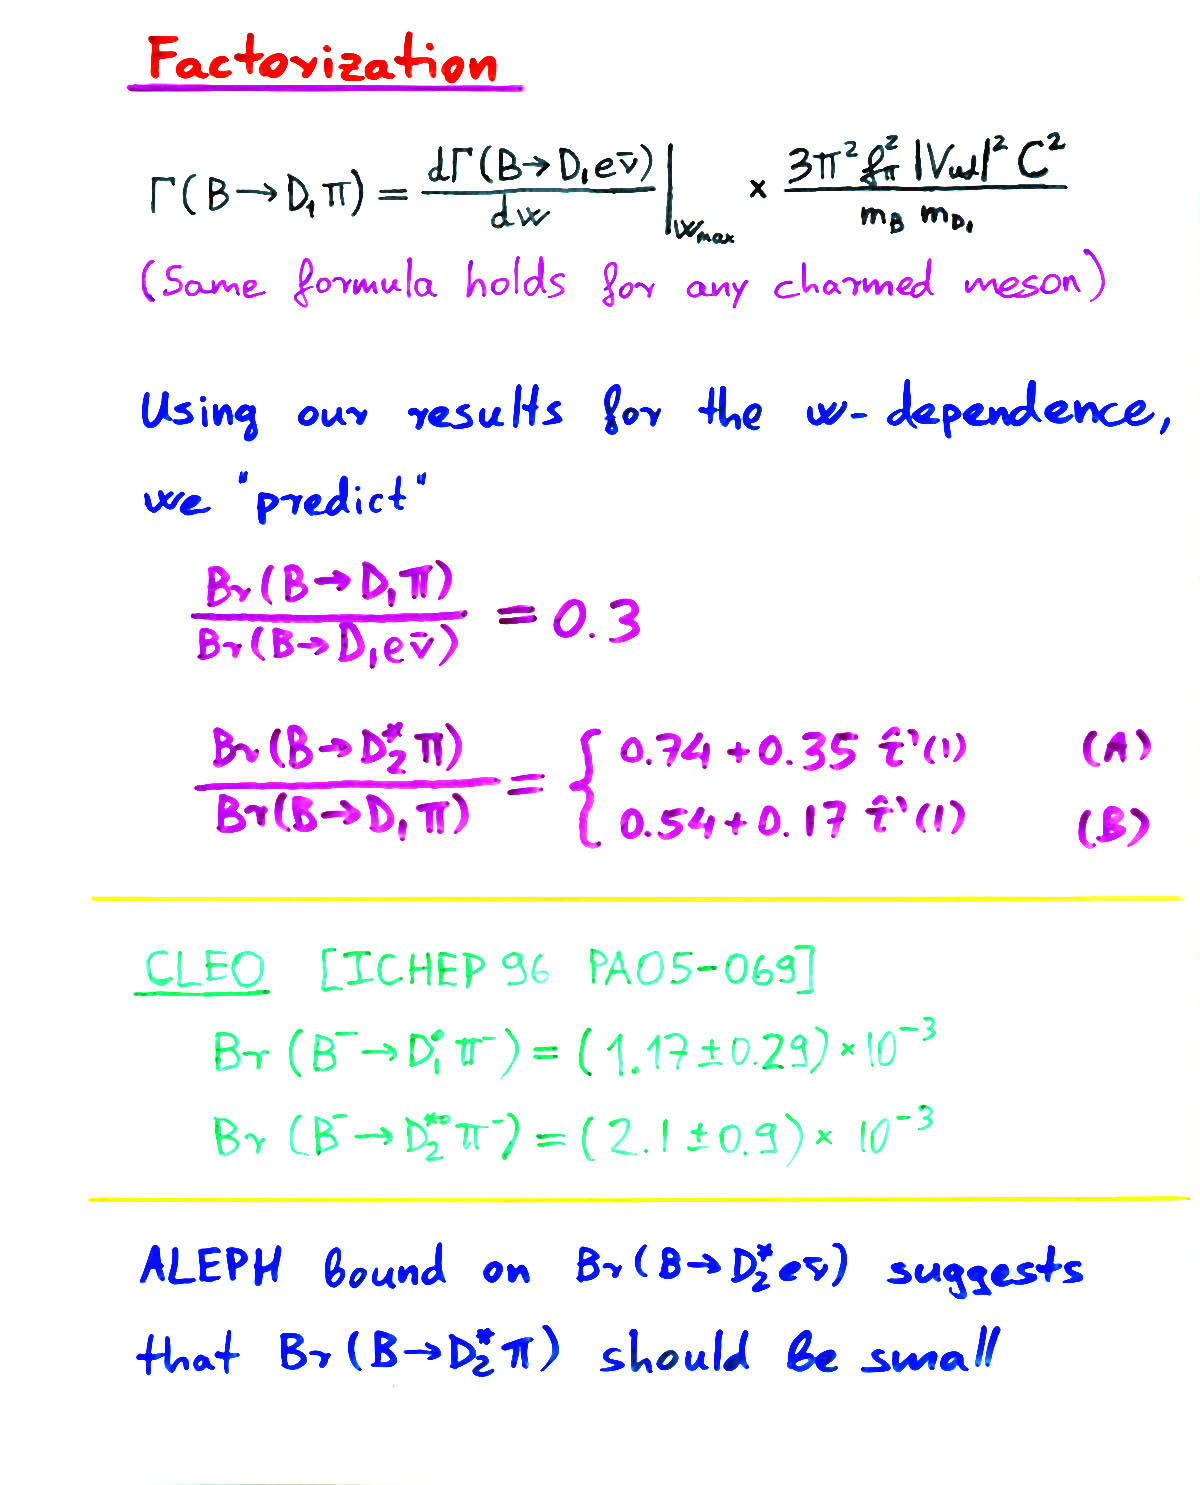 Factorization
Γ(B→D₁π) = dΓ(B→D₁eν̄)/dw |_{wmax} × 3π² f_π² |V_ud|² C² / m_B m_{D₁}
(Same formula holds for any charmed meson)
Using our results for the w-dependence,
we "predict"
Br(B→D₁π) / Br(B→D₁eν̄) = 0.3
Br(B→D₂*π) / Br(B→D₁π) = { 0.74 + 0.35 τ̂'(1) (A)
0.54 + 0.17 τ̂'(1) (B)
CLEO [ICHEP 96 PA05-069]
Br (B⁻→D₁⁰π⁻) = (1.17 ± 0.29) × 10⁻³
Br (B⁻→D₂*⁰π⁻) = (2.1 ± 0.9) × 10⁻³
ALEPH bound on Br(B→D₂*eν̄) suggests
that Br(B→D₂*π) should be small